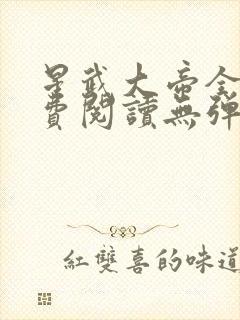 星武大帝全
費閱讀無彈
紅雙喜的味道